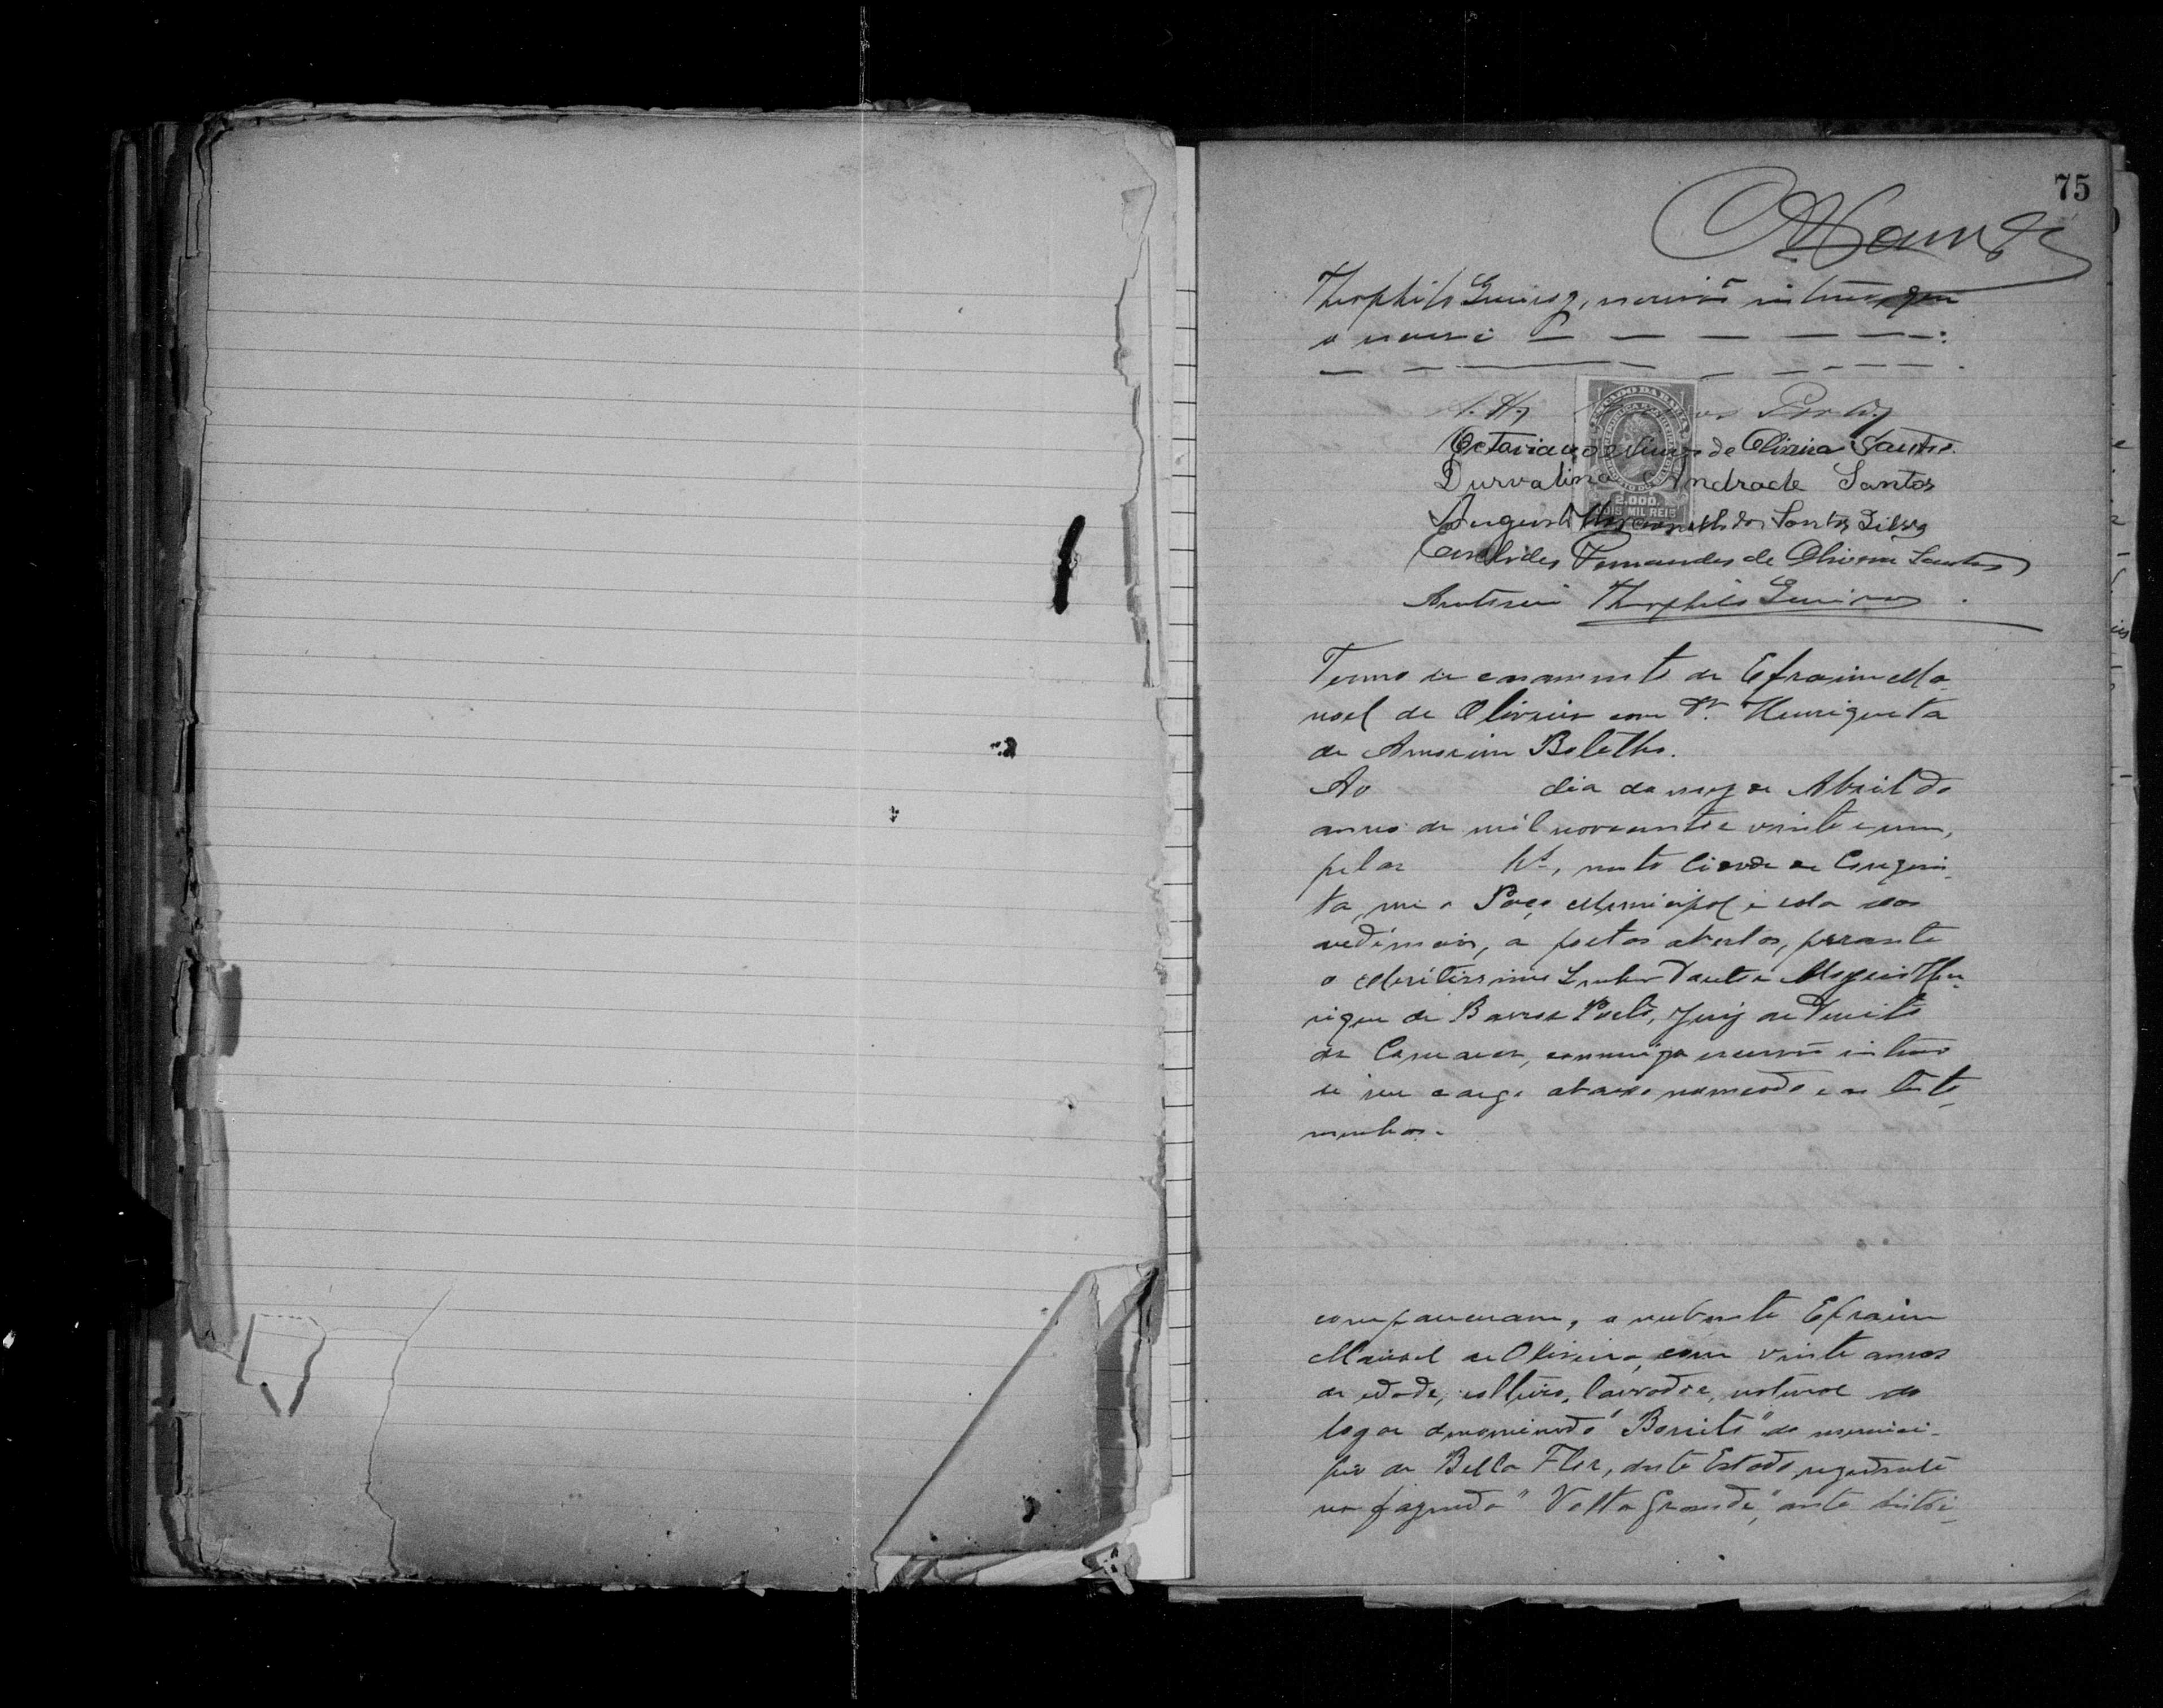 75
Theophilo Guimes, escrivão interino, que
o escrevi
ESTADO DA BAHIA
Octaviano de Oliveira Santos.
2.000.
DOIS MIL REIS
Durvalina Andrade Santos
Augusto dos Santos Silva
Euclides Fernandes de Oliveira Santos
Theophilo
Termo de casamento de Efraim Ma-
noel de Oliveira com D. Henriqueta
de Amorim Botelho.
Ao dia do mez de Abril do
anno de mil novecentos e vinte e um,
pelas hs, nesta Cidade de Conquis-
ta, em o Paço Municipal e sala das
audiencias, a portas abertas, perante
o Meritissimo Senhor Doutor Hen-
rique de Porto, Juiz de Direito
da Comarca, commigo escrivão interino
de seu cargo abaixo nomeado e as teste-
munhas.
compareceram, o nubente Efraim
Manoel de Oliveira, com vinte annos
de edade, solteiro, lavrador, natural do
logar denominado "Bonito" do munici-
pio de Bella Flor, deste Estado, residente
na fazenda "Volta Grande", deste distri-